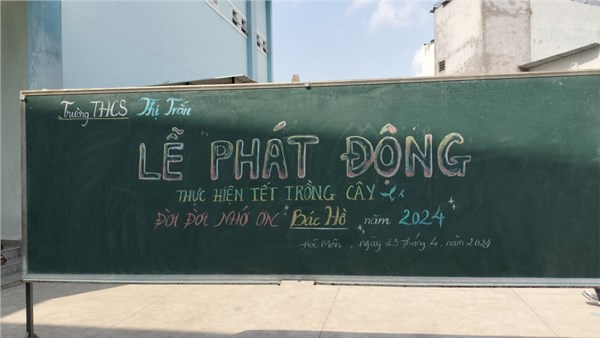 Trường THCS Thị Trấn
LỄ PHÁT ĐỘNG
THỰC HIỆN TẾT TRỒNG CÂY
ĐỜI ĐỜI NHỚ ƠN Bác Hồ năm 2024
Hóc Môn, ngày 23 tháng 4 năm 2024